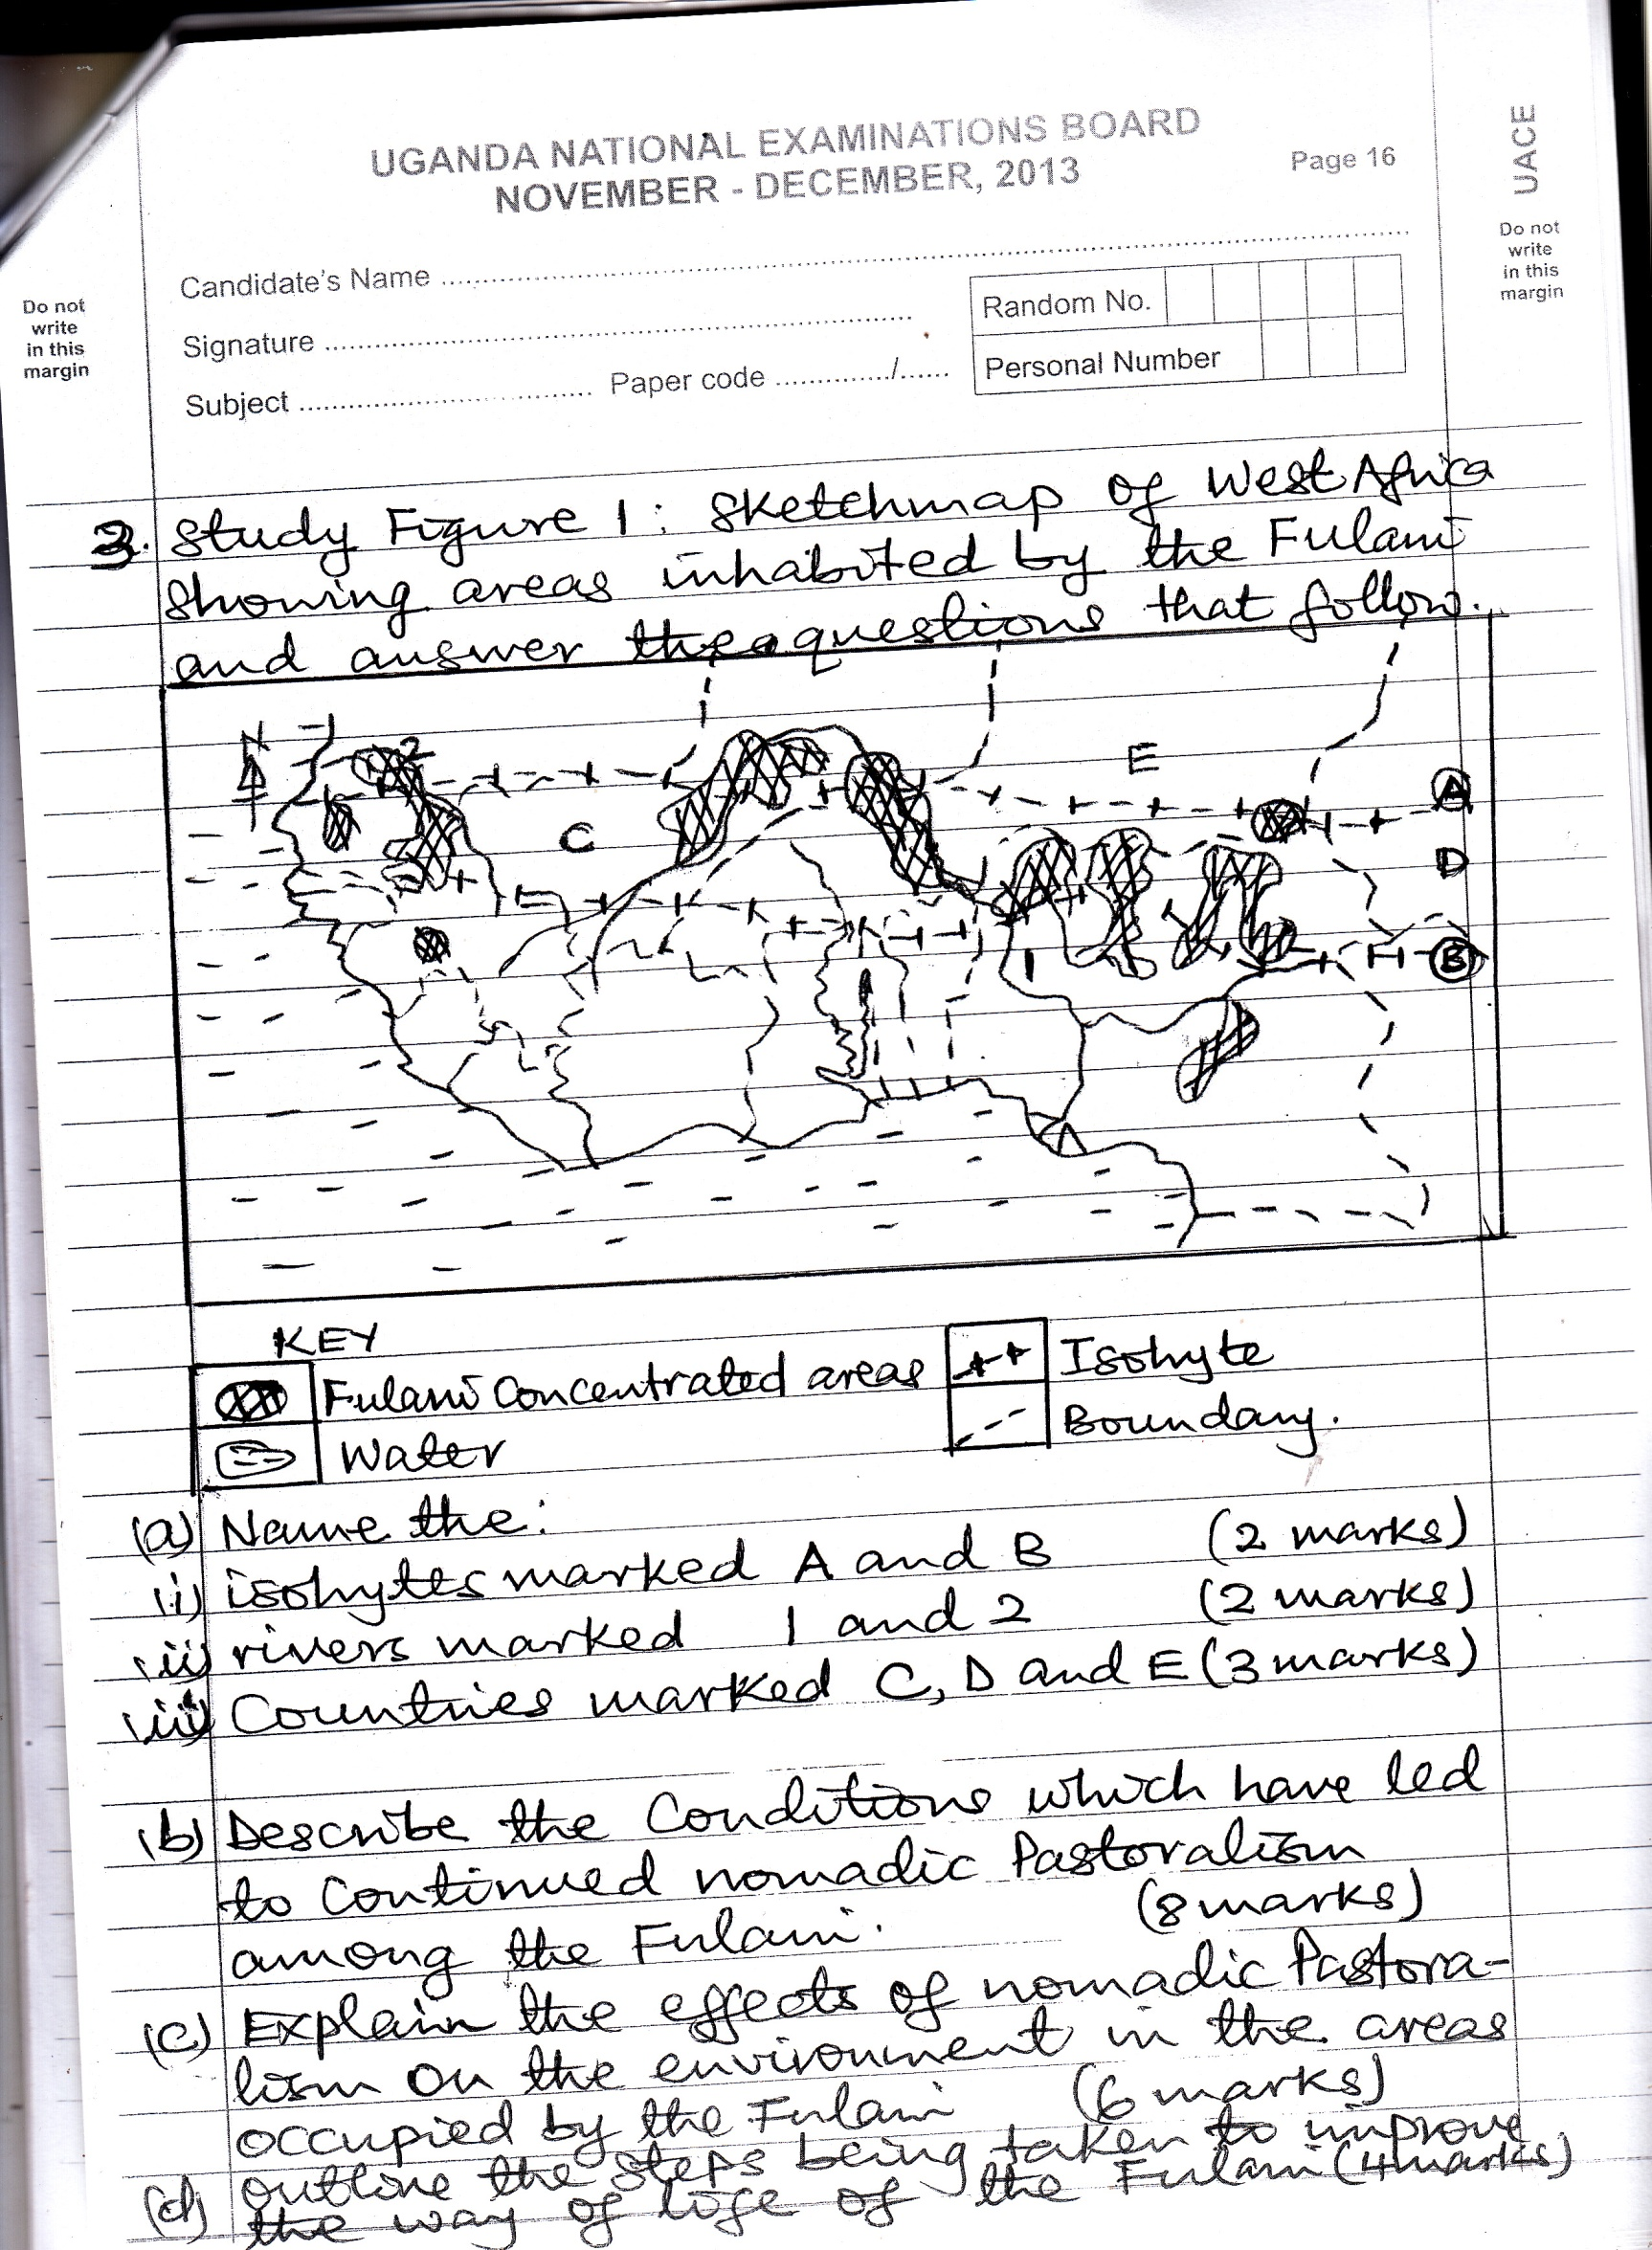 UGANDA NATIONAL EXAMINATIONS BOARD
NOVEMBER - DECEMBER, 2013
Page 16
UACE
Do not
write
in this
margin
Do not
write
in this
margin
Candidate's Name
Signature
Subject
Paper code ............../......
Random No.
Personal Number
3. Study Figure 1: Sketchmap of West Africa
showing areas inhabited by the Fulani
and answer the questions that follow.
N
2
E
A
C
D
1
B
KEY
Fulani Concentrated areas
Isohyte
Water
Boundary.
(a) Name the:
(i) isohytes marked A and B (2 marks)
(ii) rivers marked 1 and 2 (2 marks)
(iii) Countries marked C, D and E (3 marks)
(b) Describe the Conditions which have led
to Continued nomadic Pastoralism
among the Fulani. (8 marks)
(c) Explain the effects of nomadic Pastora-
lism on the environment in the areas
occupied by the Fulani (6 marks)
(d) outline the steps being taken to improve
the way of life of the Fulani (4 marks)